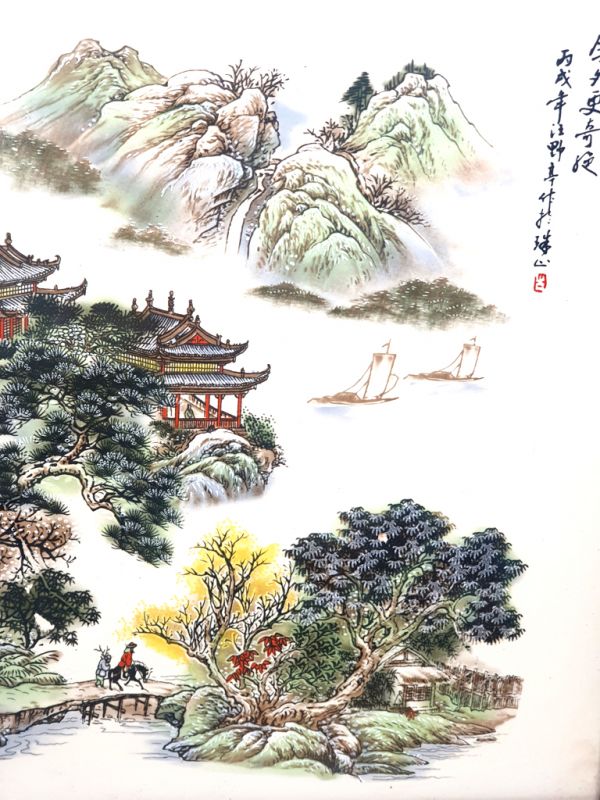 更奇绝
丙戌年汪野亭作於珠山